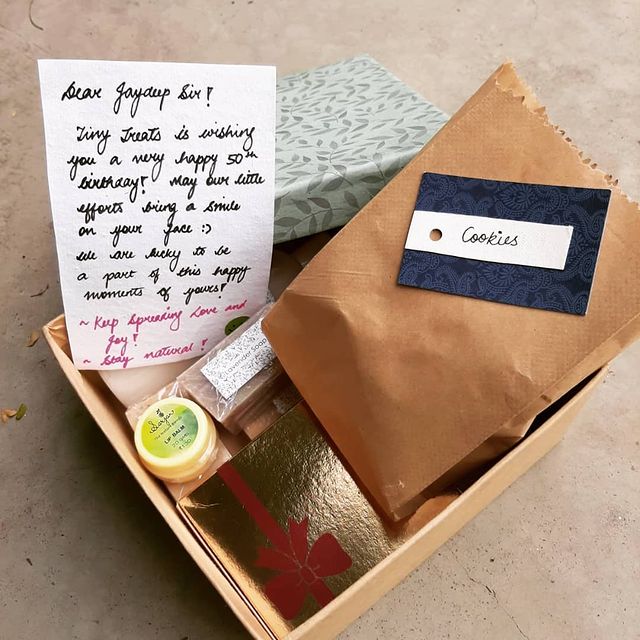 Dear Jaydeep Sir!
Tiny Treats is wishing
you a very happy 50th
birthday! May our little
efforts bring a smile
on your face :)
We are lucky to be
a part of this happy
moments of yours!
~ Keep Spreading Love and
Joy!
~ Stay natural!
Cookies
Lavender Soap
LIP BALM